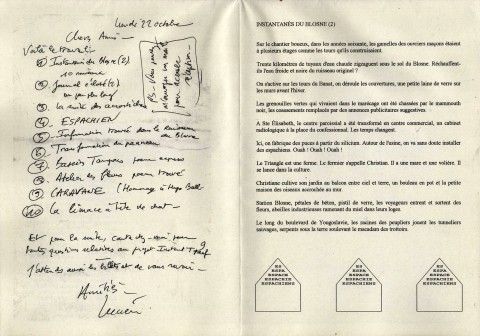 Lundi 22 octobre
Chers Amis
Voici le travail
① Instantanés du Blosne (2)
10 minimum
② Journal
③ La suite des acrostiches
④ ESPACHIEN
⑤ Information trouvée dans le
Blosne
⑥ Transformation du panneau
⑦
⑧ Atelier des fleurs
⑨ CARAVANE (Hommage à Hugo Ball)
⑩ La limace à tête de chat
Et pour la suite, contactez-moi pour
toutes questions relatives au projet Instant T
J'attends aussi les et de vous revoir
Amitiés
Lucien
PS
INSTANTANÉS DU BLOSNE (2)
Sur le chantier boueux, dans les années soixante, les gamelles des ouvriers maçons étaient
à plusieurs étages comme les tours qu'ils construisaient.
Trente kilomètres de tuyaux d'eau chaude zigzaguent sous le sol du Blosne. Réchauffent-
ils l'eau froide et noire du ruisseau originel ?
On s'active sur les tours du Banat, on déroule les couvertures, une petite laine de verre sur
les murs avant l'hiver.
Les grenouilles vertes qui vivaient dans le marécage ont été chassées par le mammouth
noir, les coassements remplacés par des annonces publicitaires suggestives.
A Ste Élisabeth, le centre paroissial a été transformé en centre commercial, un cabinet
radiologique à la place du confessionnal. Les temps changent.
Ici, on fabrique des puces à partir du silicium. Autour de l'usine, on va sans doute installer
des espachiens. Ouah ! Ouah ! Ouah !
Le Triangle est une ferme. Le fermier s'appelle Christian. Il a une mare et une volière. Il
se lance dans la culture.
Christiane cultive son jardin au balcon entre ciel et terre, un bouleau en pot et la petite
maison des oiseaux accrochée au mur.
Station Blosne, pétales de béton, pistil de verre, les voyageurs entrent et sortent des
fleurs, abeilles industrieuses ramenant du miel dans leurs loges.
Le long du boulevard de Yougoslavie, les racines des peupliers jouent les tunneliers
sauvages, serpents sous la terre soulevant le macadam des trottoirs.
ES
ESPA
ESPACE
ESPACHIE
ESPACHIENS
ES
ESPA
ESPACE
ESPACHIE
ESPACHIENS
ES
ESPA
ESPACE
ESPACHIE
ESPACHIENS